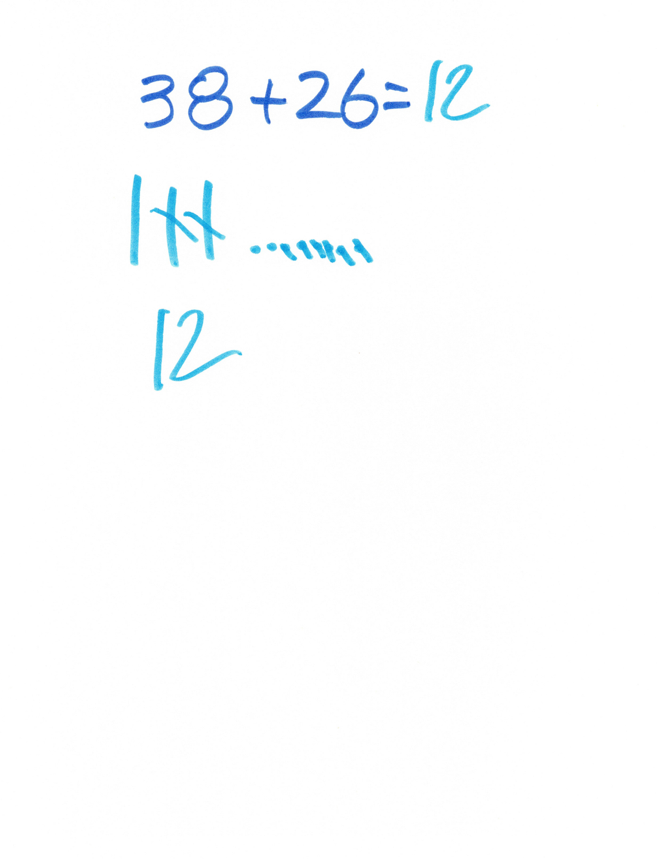 38+26=12
12